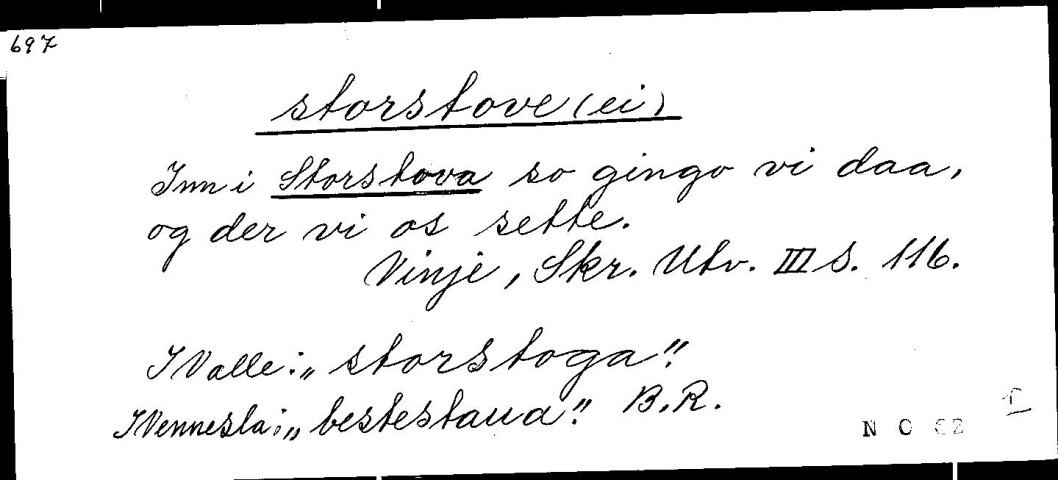 697
storstove (ei)
Inn i Storstova so gingo vi daa,
og der vi os sette.
Vinje, Skr. Utv. III S. 116.
I Valle: „storstoga".
I Vennesla: „bestestaua". B.R.
N O 62